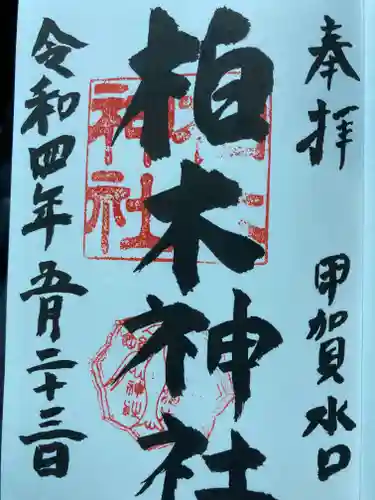 奉拝
甲賀水口
柏木神社
令和四年五月二十三日